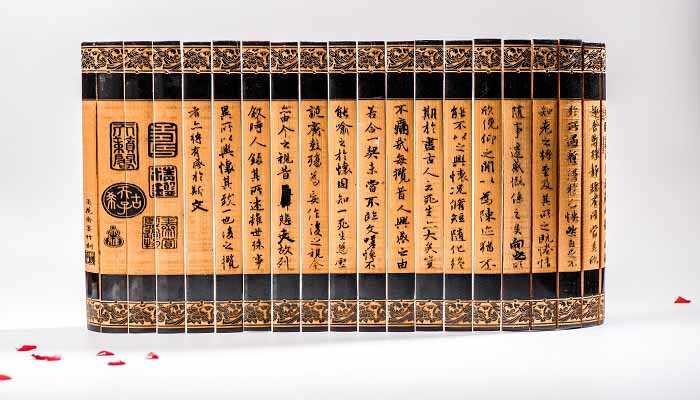 趣舍萬殊靜躁不同當其欣
於所遇暫得於己快然自足不
知老之將至及其所之既惓情
隨事遷感慨係之矣向之所
欣俛仰之閒以爲陳迹猶不
能不以之興懷況脩短隨化終
期於盡古人云死生亦大矣豈
不痛哉每攬昔人興感之由
若合一契未嘗不臨文嗟悼不
能喻之於懷固知一死生爲虛
誕齊彭殤爲妄作後之視今
亦由今之視昔悲夫故列
敘時人錄其所述雖世殊事
異所以興懷其致一也後之攬
者亦將有感於斯文